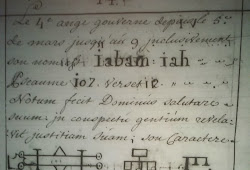 Le 4e ange gouverne depuis le 5e
de mars jusqu'au 9 inclusivement
son nom est Iabam : iah
Pseaume 107. Verset 2
Notum fecit Dominus salutare
suum in conspectu gentium revela-
vit justitiam suam ; son Caractere